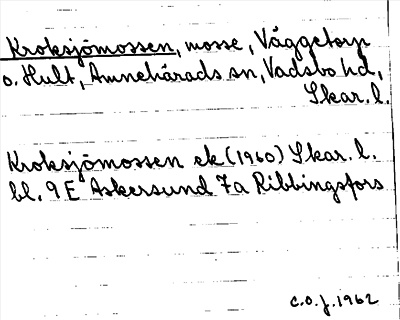 Kroksjömossen, mosse, Väggetorp
o. Hult, Amnehärads sn, Vadsbo hd,
Skar. l.
Kroksjömossen ek (1960) Skar. l.
bl. 9E Askersund 7a Ribbingsfors
C.O.J. 1962